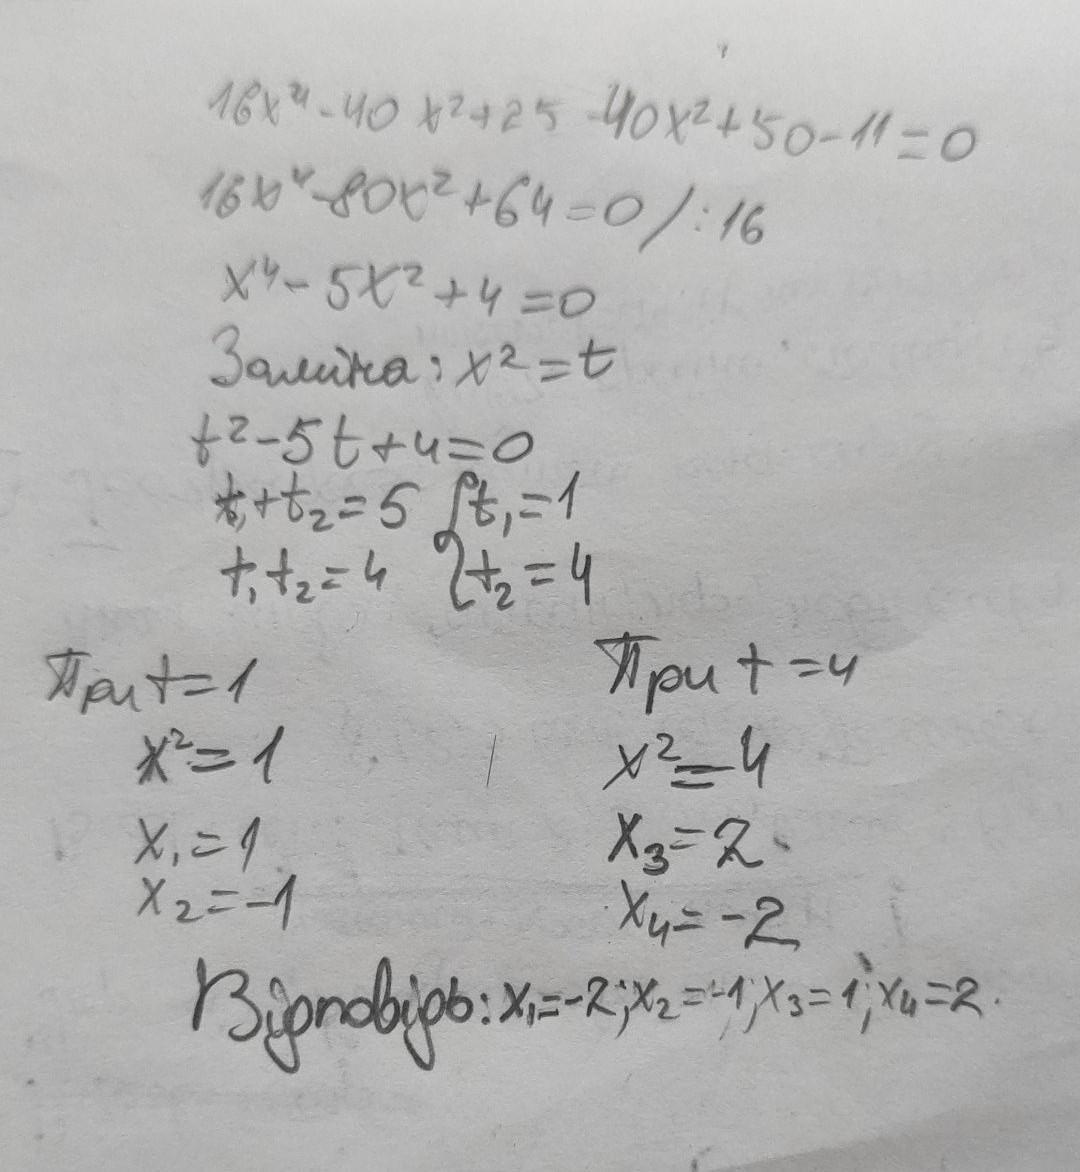 16x⁴-40x²+25-40x²+50-11=0
16x⁴-80x²+64=0/:16
x⁴-5x²+4=0
Заміна: x²=t
t²-5t+4=0
t₁+t₂=5 { t₁=1
t₁t₂=4 { t₂=4
При t=1 При t=4
x²=1 x²=4
x₁=1 x₃=2
x₂=-1 x₄=-2
Відповідь: x₁=-2; x₂=-1; x₃=1; x₄=2.